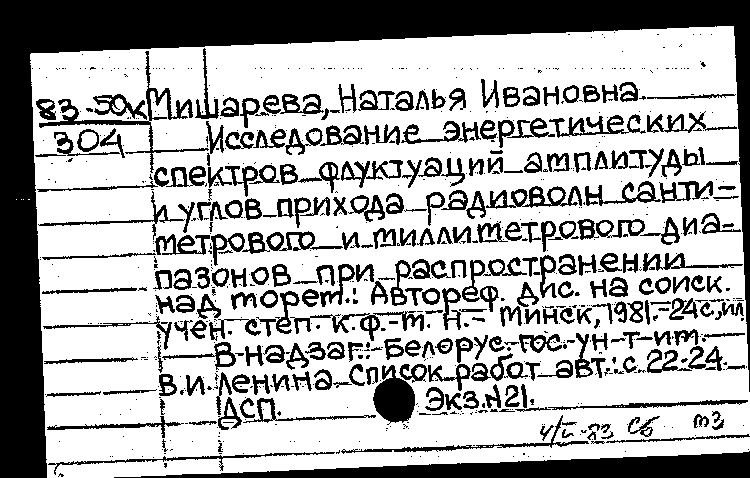 83-50к Мишарева, Наталья Ивановна
304 Исследование энергетических
спектров флуктуаций амплитуды
и углов прихода радиоволн санти-
метрового и миллиметрового диа-
пазонов при распространении
над морем.: Автореф. дис. на соиск.
учен. степ. к.ф.-м. н.- Минск, 1981.-24с., ил
В надзаг.: Белорус. гос. ун-т им.
В.И. Ленина. Список работ авт.: с. 22-24.
ДСП. Экз. N21.
4/V-83 Сб тз